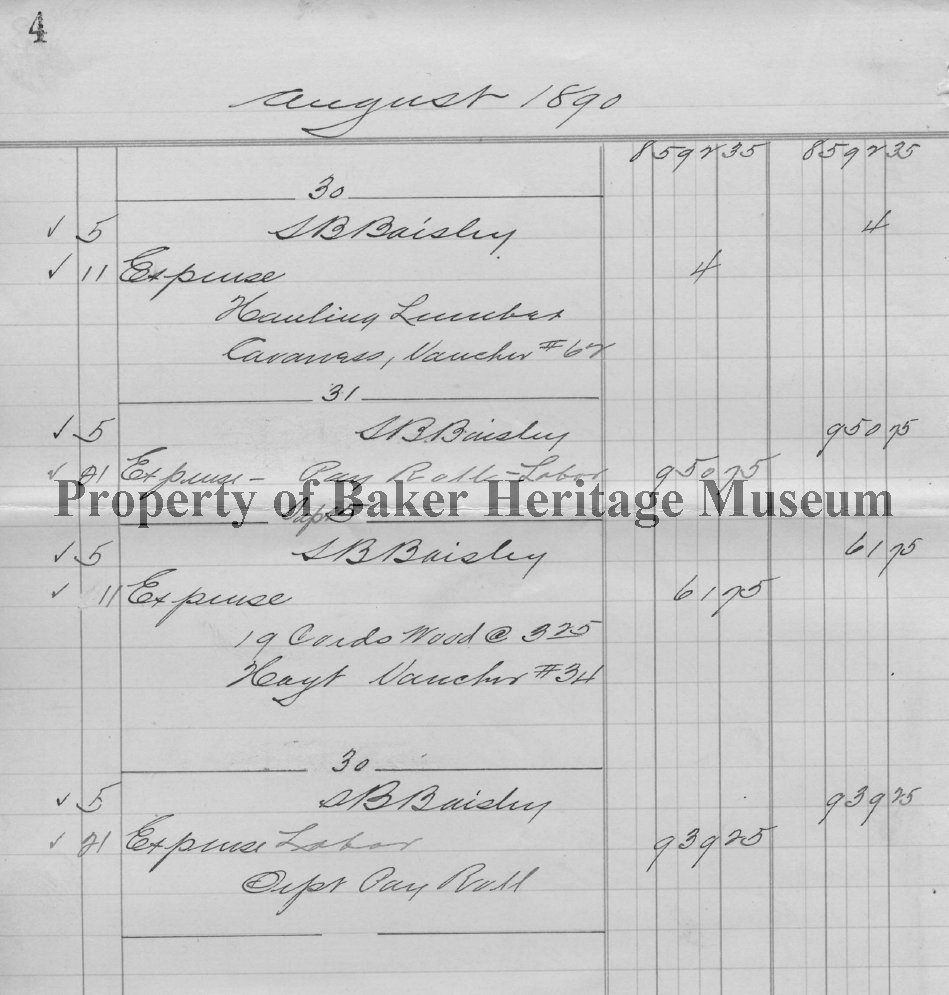 4
August 1890
8592 35 8592 35
30
✓ 5 S B Baisley 4
✓ 11 Expense 4
Hauling Lumber
Cavaness, Voucher #62
31
✓ 5 S B Baisley 950 75
✓ 21 Expense – Pay Roll – Labor 950 75
Property of Baker Heritage Museum
Sept 5
✓ 5 S B Baisley 61 75
✓ 11 Expense 61 75
19 Cords Wood @ 3 25
Hoyt Voucher #34
30
✓ 5 S B Baisley 939 25
✓ 21 Expense Labor 939 25
Sept Pay Roll